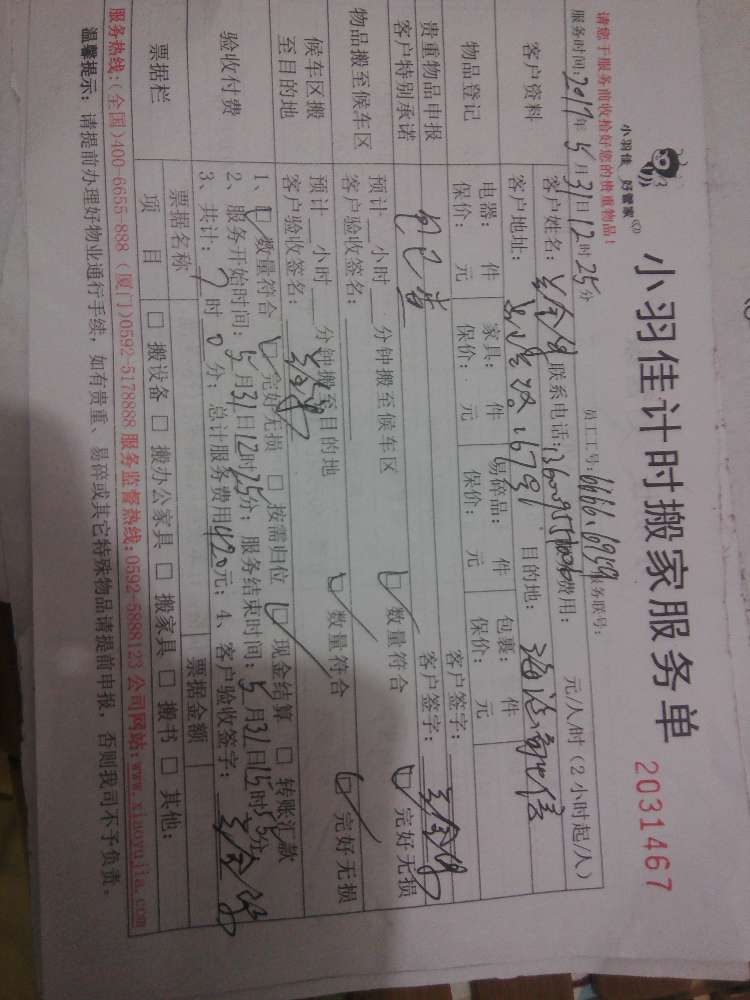 小羽佳 好管家
小羽佳计时搬家服务单
2031467
请您于服务前收拾好您的贵重物品!
员工工号: 服务联号:
服务时间:2017年5月31日12时25分
客户资料
客户姓名: 联系电话: 费用: 元/人/时(2小时起/人)
客户地址: 目的地:
物品登记
电器: 件 家具: 件 易碎品: 件 包裹: 件
保价: 元 保价: 元 保价: 元 保价: 元
客户签字:
贵重物品申报
客户特别承诺
客户签字:
物品搬至候车区
预计 小时 分钟搬至候车区 数量符合 完好无损
客户验收签名:
候车区搬
至目的地
预计 小时 分钟搬至目的地 数量符合 完好无损
客户验收签名:
验收付费
1、 数量符合 完好无损 按需归位 现金结算 转账汇款
2、服务开始时间:5月31日12时25分; 服务结束时间:5月31日15时55分
3、共计:7时0分; 总计服务费用420元; 4、客户验收签字:
票据栏
票据名称 票据金额
项目 □ 搬设备 □ 搬办公家具 □ 搬家具 □ 搬书 □ 其他:
服务热线:(全国)400-6655-888 (厦门)0592-5178888 服务监督热线:0592-5888123 公司网站:www.xiaoyujia.com
温馨提示: 请提前办理好物业通行手续, 如有贵重、易碎或其它特殊物品请提前申报, 否则我司不予负责。